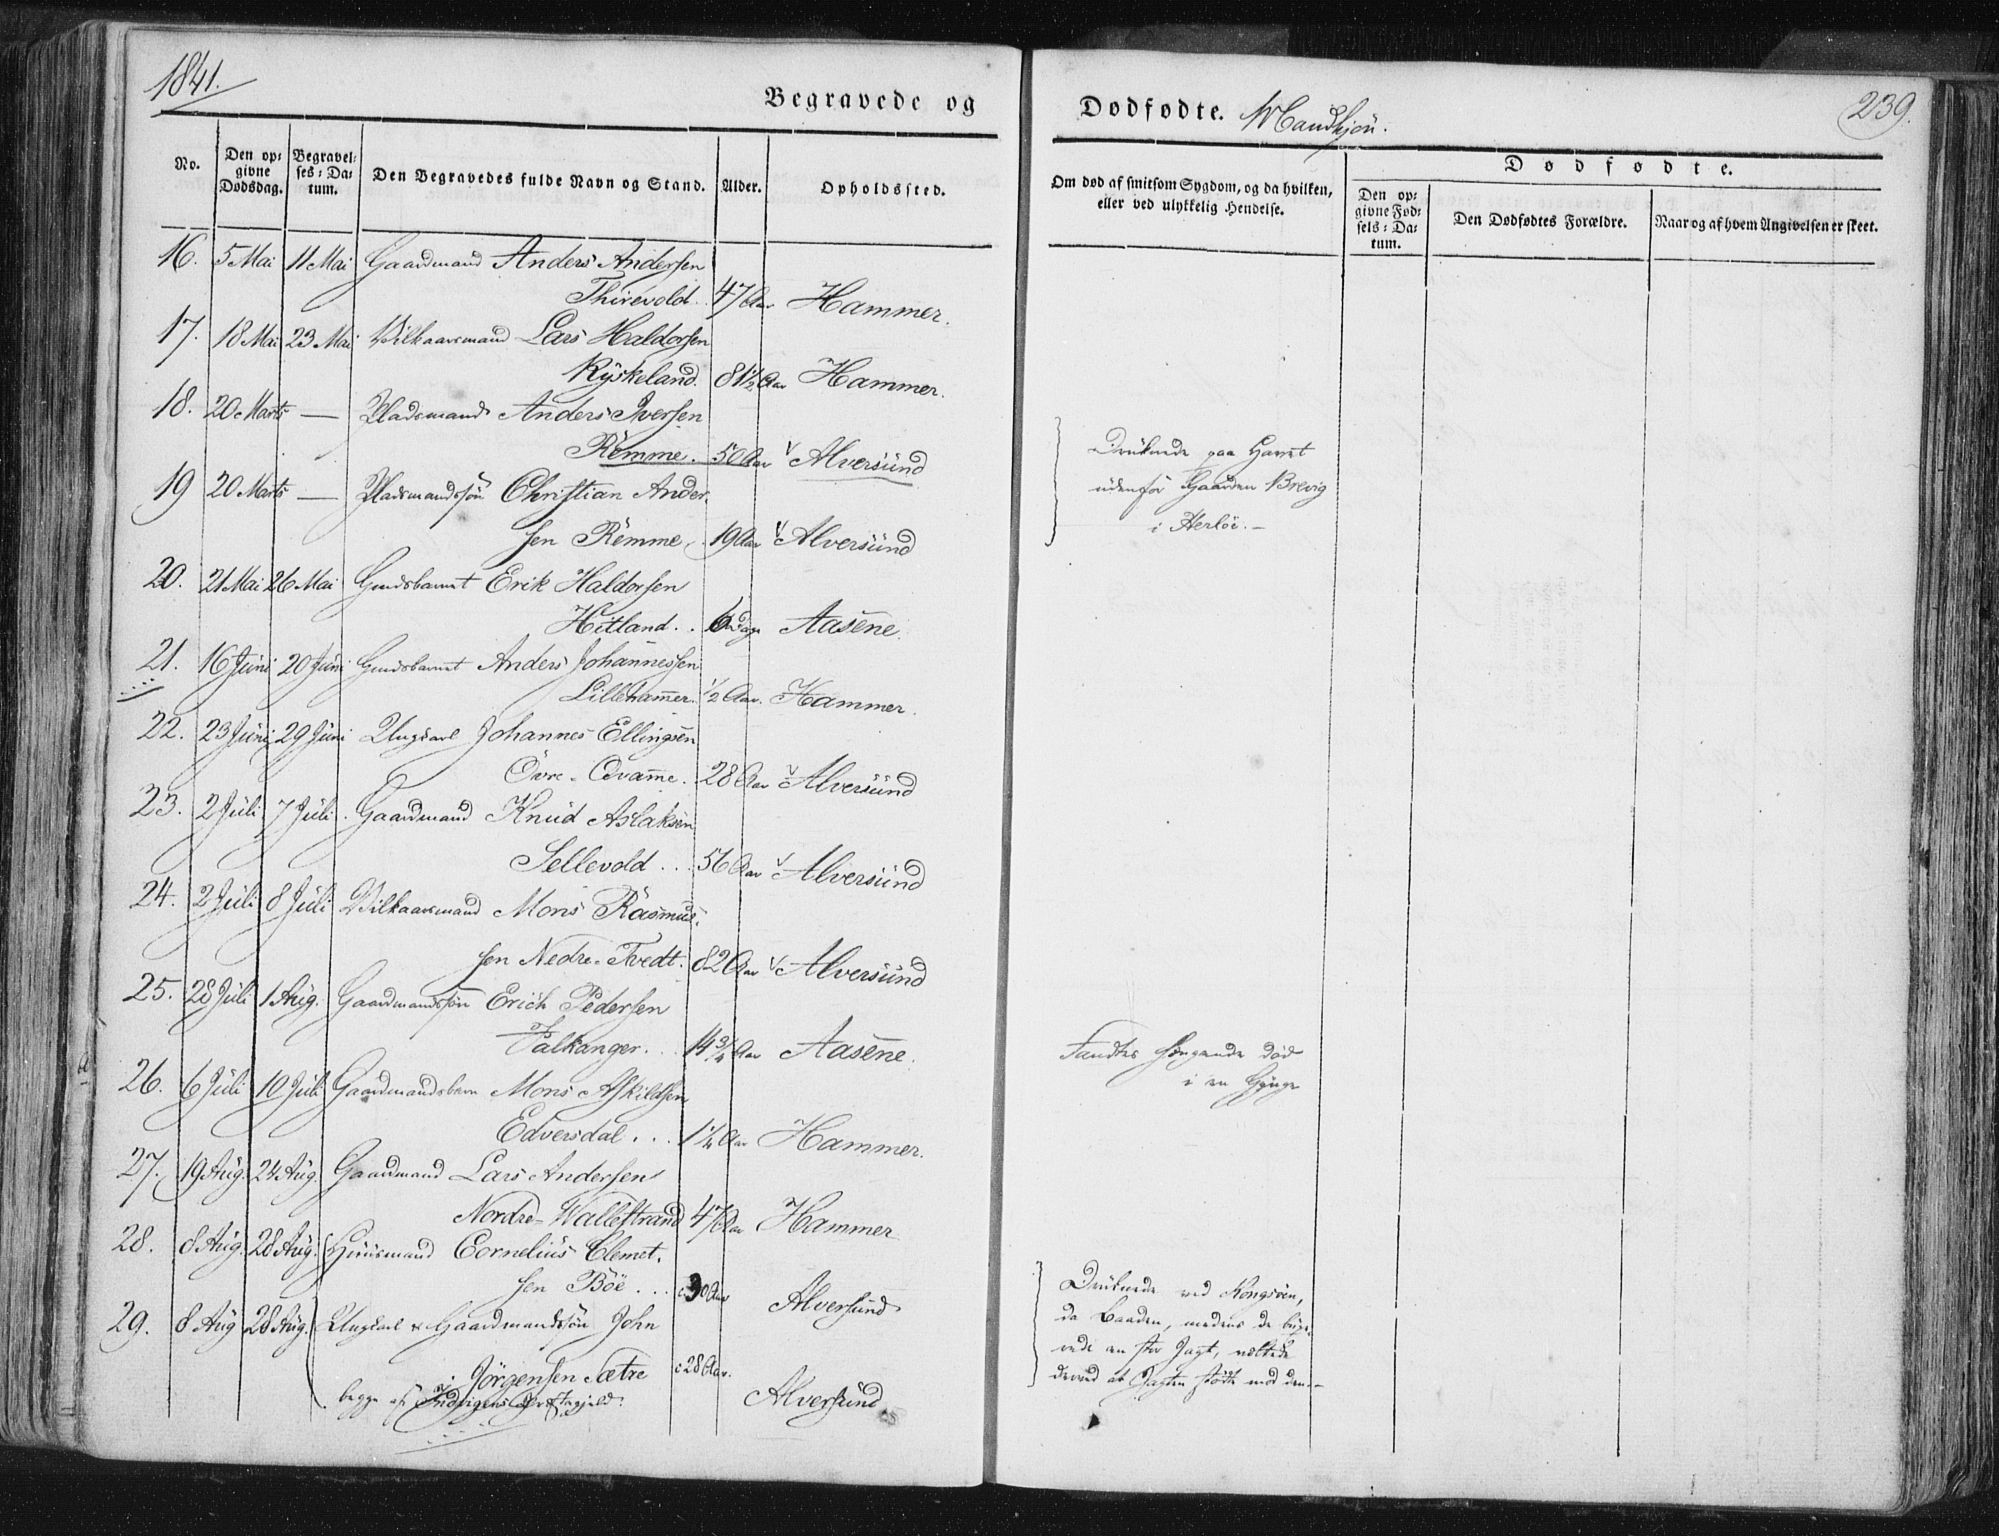 1841.
Begravede og
Dødfødte. Mandkjøn.
239.
No.
Den opgivne Dødsdag.
Begravelses-Datum.
Den Begravedes fulde Navn og Stand.
Alder.
Opholdssted.
Om død af smitsom Sygdom, og da hvilken, eller ved ulykkelig Hendelse.
Dødfødte.
Den opgivne Fødsels-Datum.
Den Dødfødtes Forældre.
Naar og af hvem Angivelsen er skeet.
16. 5 Mai 11 Mai Gaardmand Anders Andersen
Thirevold. 47 Aar Hammer.
17. 18 Mai 23 Mai Vilkaarsmand Lars Haldorsen
Ryskeland. 81½ Aar Hammer.
18. 20 Marts — Pladsmand Anders Iversen
Remme. 50 Aar v Alversund
Druknede paa Havet
19 20 Marts — Pladsmandssøn Christian Ander-
udenfor Gaarden Brevig
sen Remme. 19 Aar v Alversund
i Herløe.—
20. 21 Mai 26 Mai Gaardsbarnet Erik Haldorsen
Hitland.. 6 Dage Aasene.
21. 16 Juni 20 Juni Gaardsbarnet Anders Johannessen
Lillehammer. ½ Aar. Hammer.
22. 23 Juni 29 Juni Ungkarl Johannes Ellingsen
Övre- . 28 Aar v Alversund
23. 2 Juli 7 Juli. Gaardmand Knud Aslaksen
Sellevold... 56 Aar v Alversund
24. 2 Juli 8 Juli Vilkaarsmand Mons Rasmus-
sen Nedre-Tvedt. 82 Aar v Alversund
25. 28 Juli 1 Aug. Gaardmandssøn Erich Pedersen
Falkanger... 14¾ Aar Aasene.
Fandtes hængende død
i en Gynge
26. 6 Juli 10 Juli Gaardmandsbarn Mons Askildsen
Edversdal... 1¼ Aar Hammer.
27. 19 Aug. 24 Aug. Gaardmand Lars Andersen
Nordre-Wallestrand 47 Aar Hammer
28. 8 Aug. 28 Aug. Huusmand Cornelius Clemet-
sen Böe... c30 Aar Alversund
Druknede ved Kongsöen,
da Baaden, medens de
29. 8 Aug 28 Aug. Ungkarl & Gaardmandssøn John
en stor Jagt, væltede
Jörgensen Sætre c28 Aar.
derved at Jagten stødte mod den.—
begge af Indvigens Præstegjeld.
Alversund